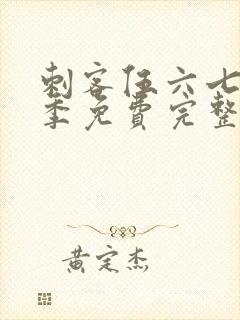 刺客伍六七
季免费完整
黄定杰